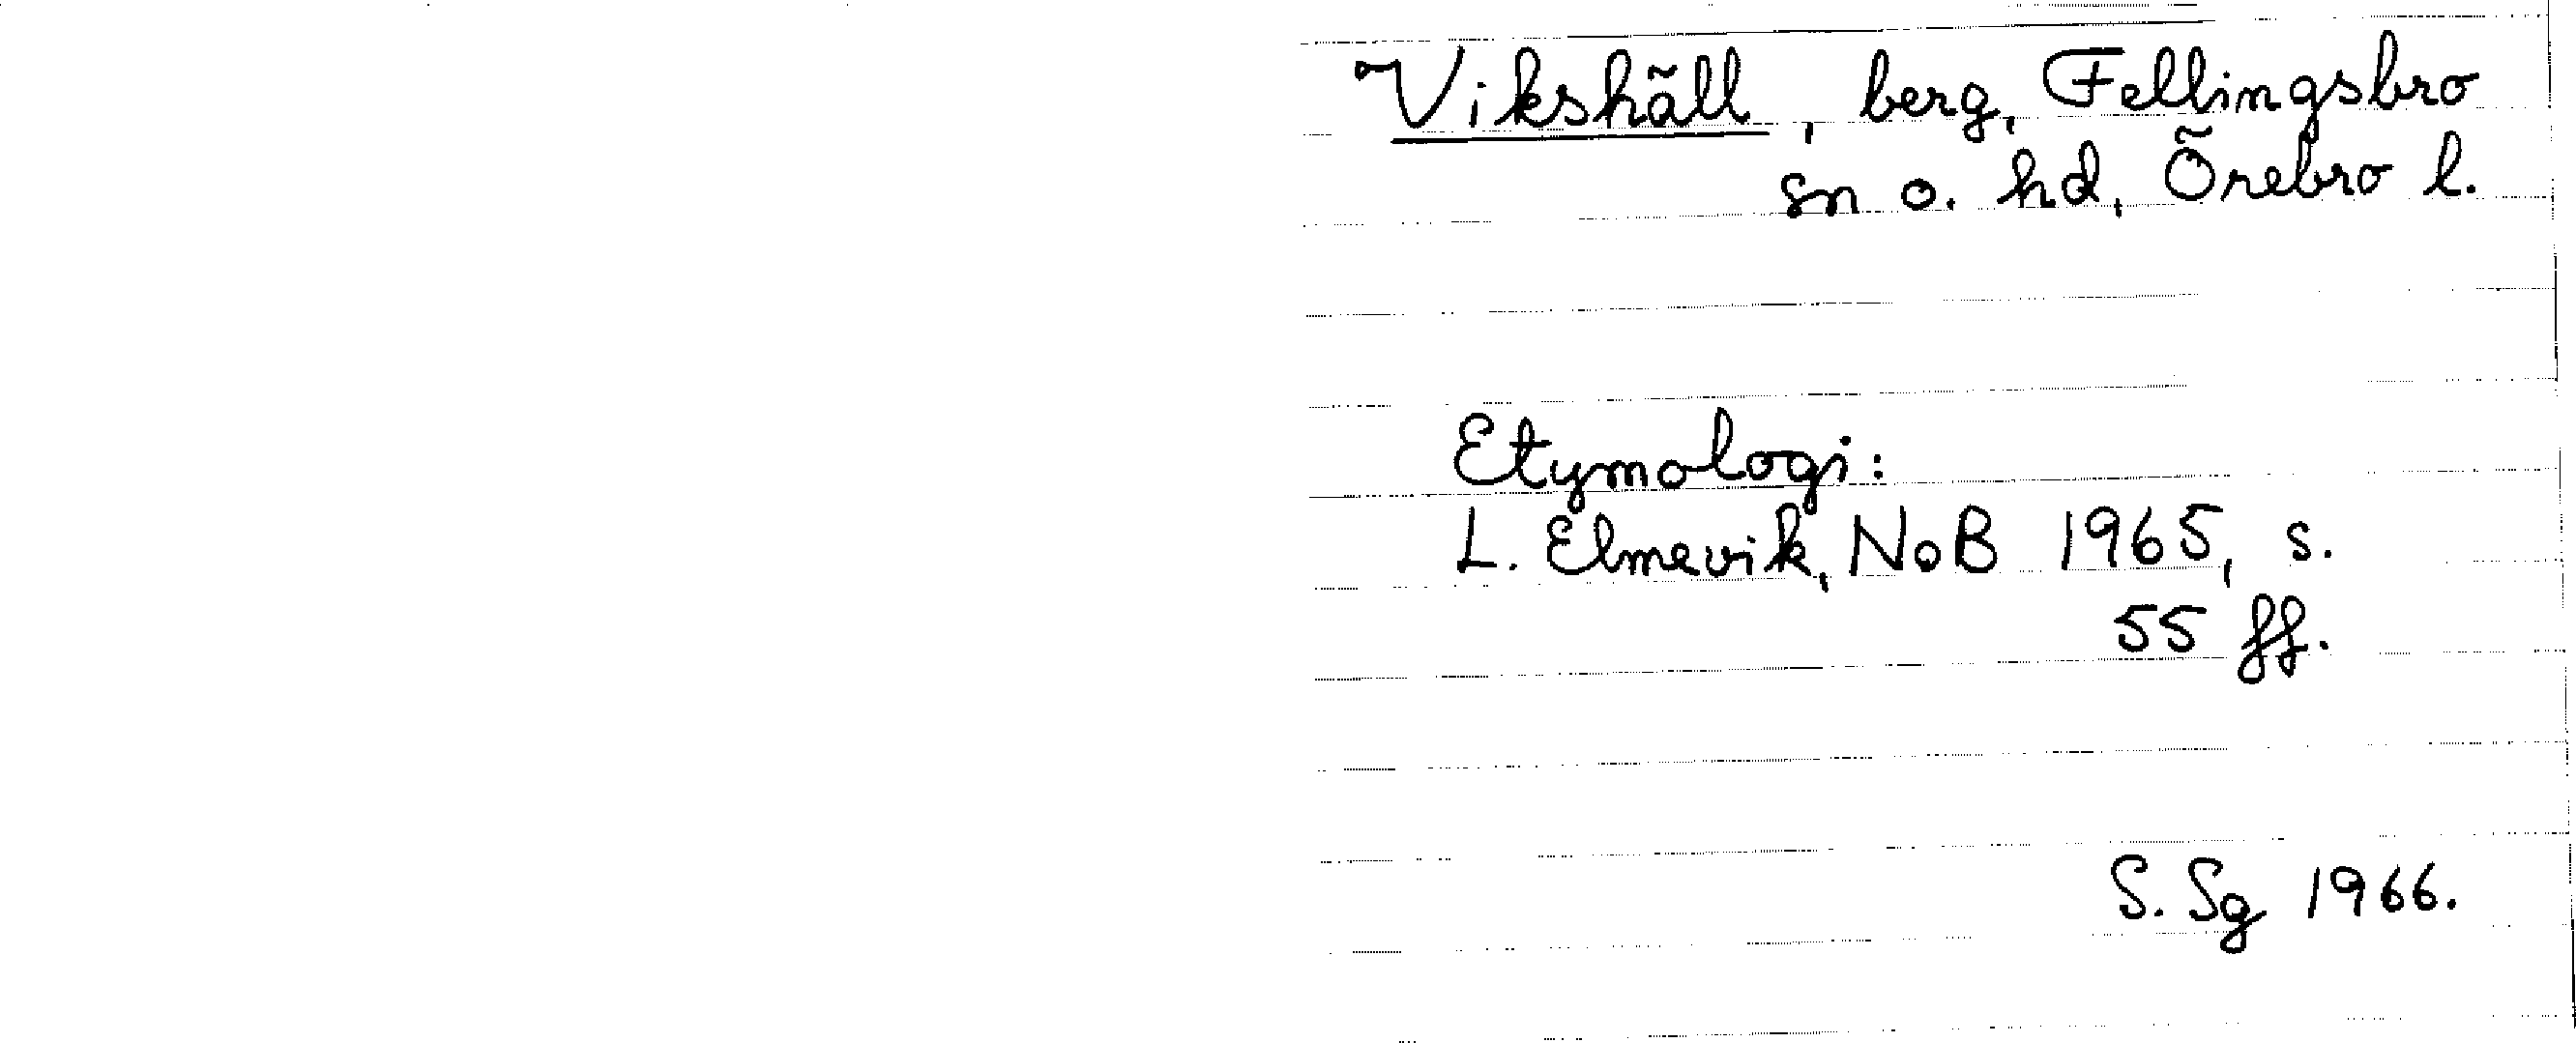 Vikshäll, berg, Fellingsbro
sn o. hd, Örebro l.
Etymologi:
L. Elmevik, NoB 1965, s.
55 ff.
S. Sg 1966.